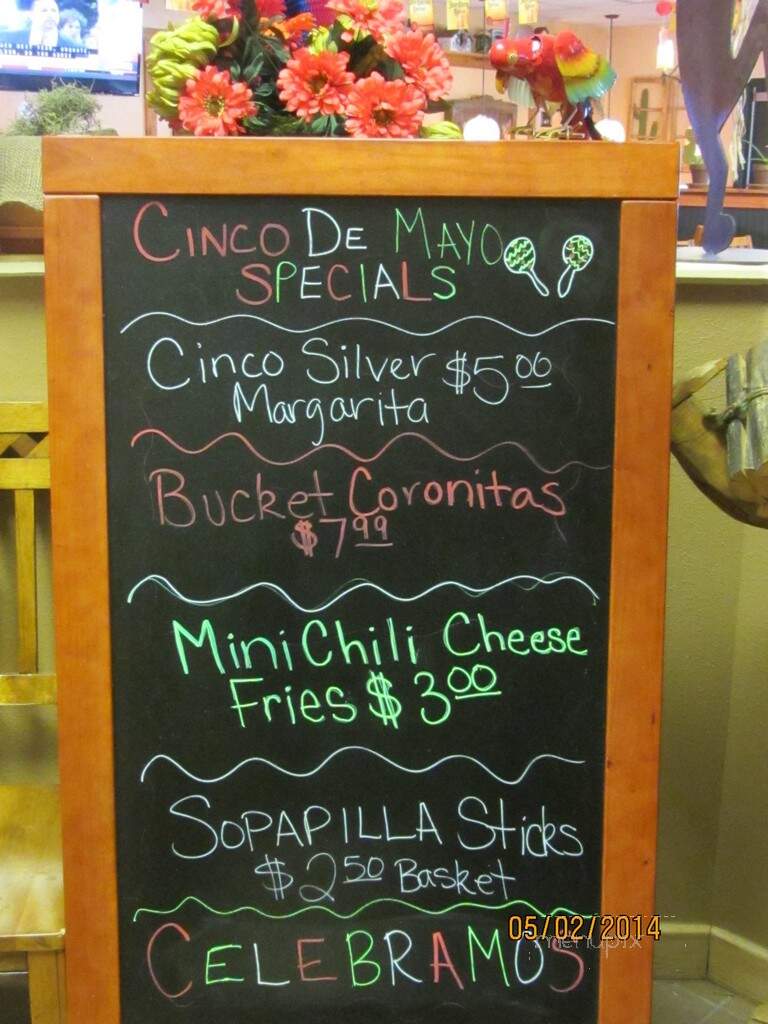 CINCO DE MAYO
SPECIALS
Cinco Silver $5.00
Margarita
Bucket Coronitas
$7.99
Mini Chili Cheese
Fries $3.00
SOPAPILLA Sticks
$2.50 Basket
CELEBRAMOS
05/02/2014
menupix